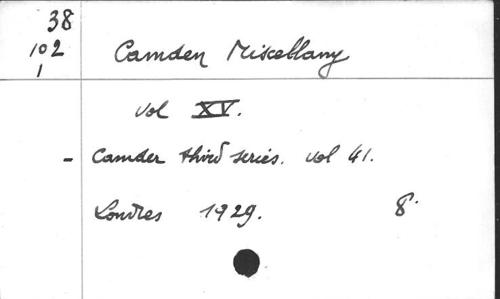 38
102
1
Camden Miscellany
vol XV.
- Camden third series. vol 41.
Londres 1929. 8°